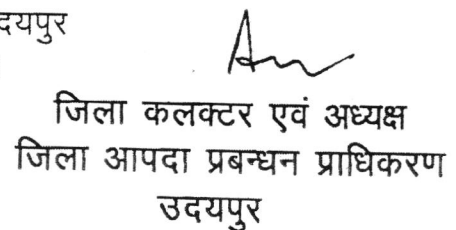 दयपुर
जिला कलक्टर एवं अध्यक्ष
जिला आपदा प्रबन्धन प्राधिकरण
उदयपुर